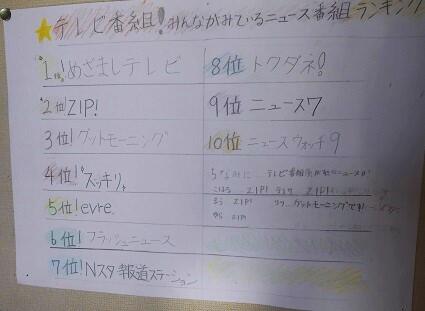 テレビ番組!みんながみているニュース番組ランキング
1位!めざましテレビ
2位!ZIP!
3位!グットモーニング
4位!スッキリ
5位!evre.
6位!フラッシュニュース
7位!Nスタ 報道ステーション
8位 トクダネ!
9位 ニュース7
10位 ニュースウォッチ9
ちなみに… テレビ番組
ZIP! ZIP!
ZIP グットモーニングです!
ZIP